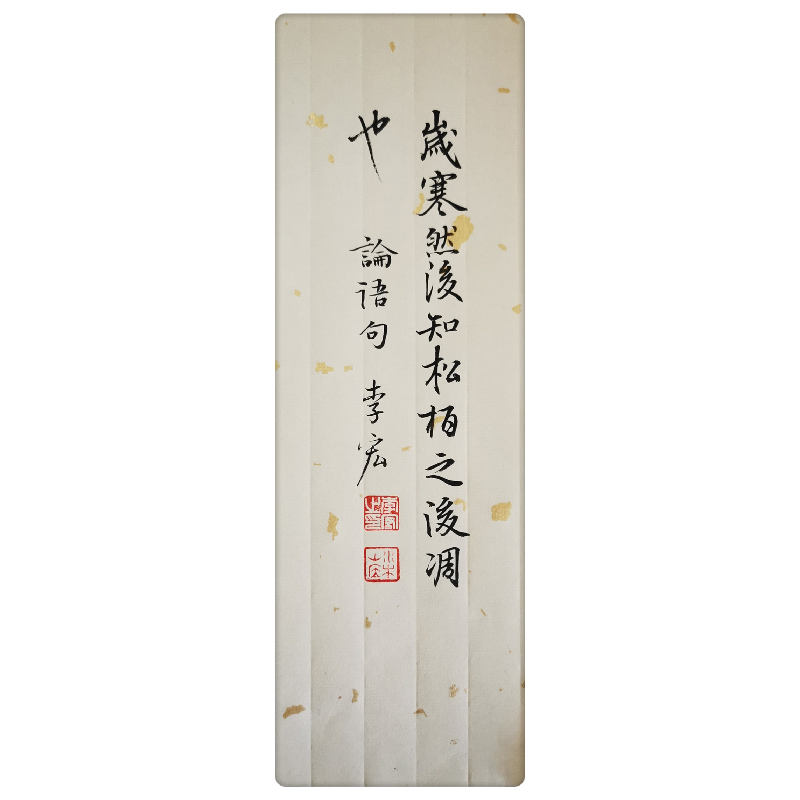 歲寒然後知松柏之後凋
也 論语句 李宏